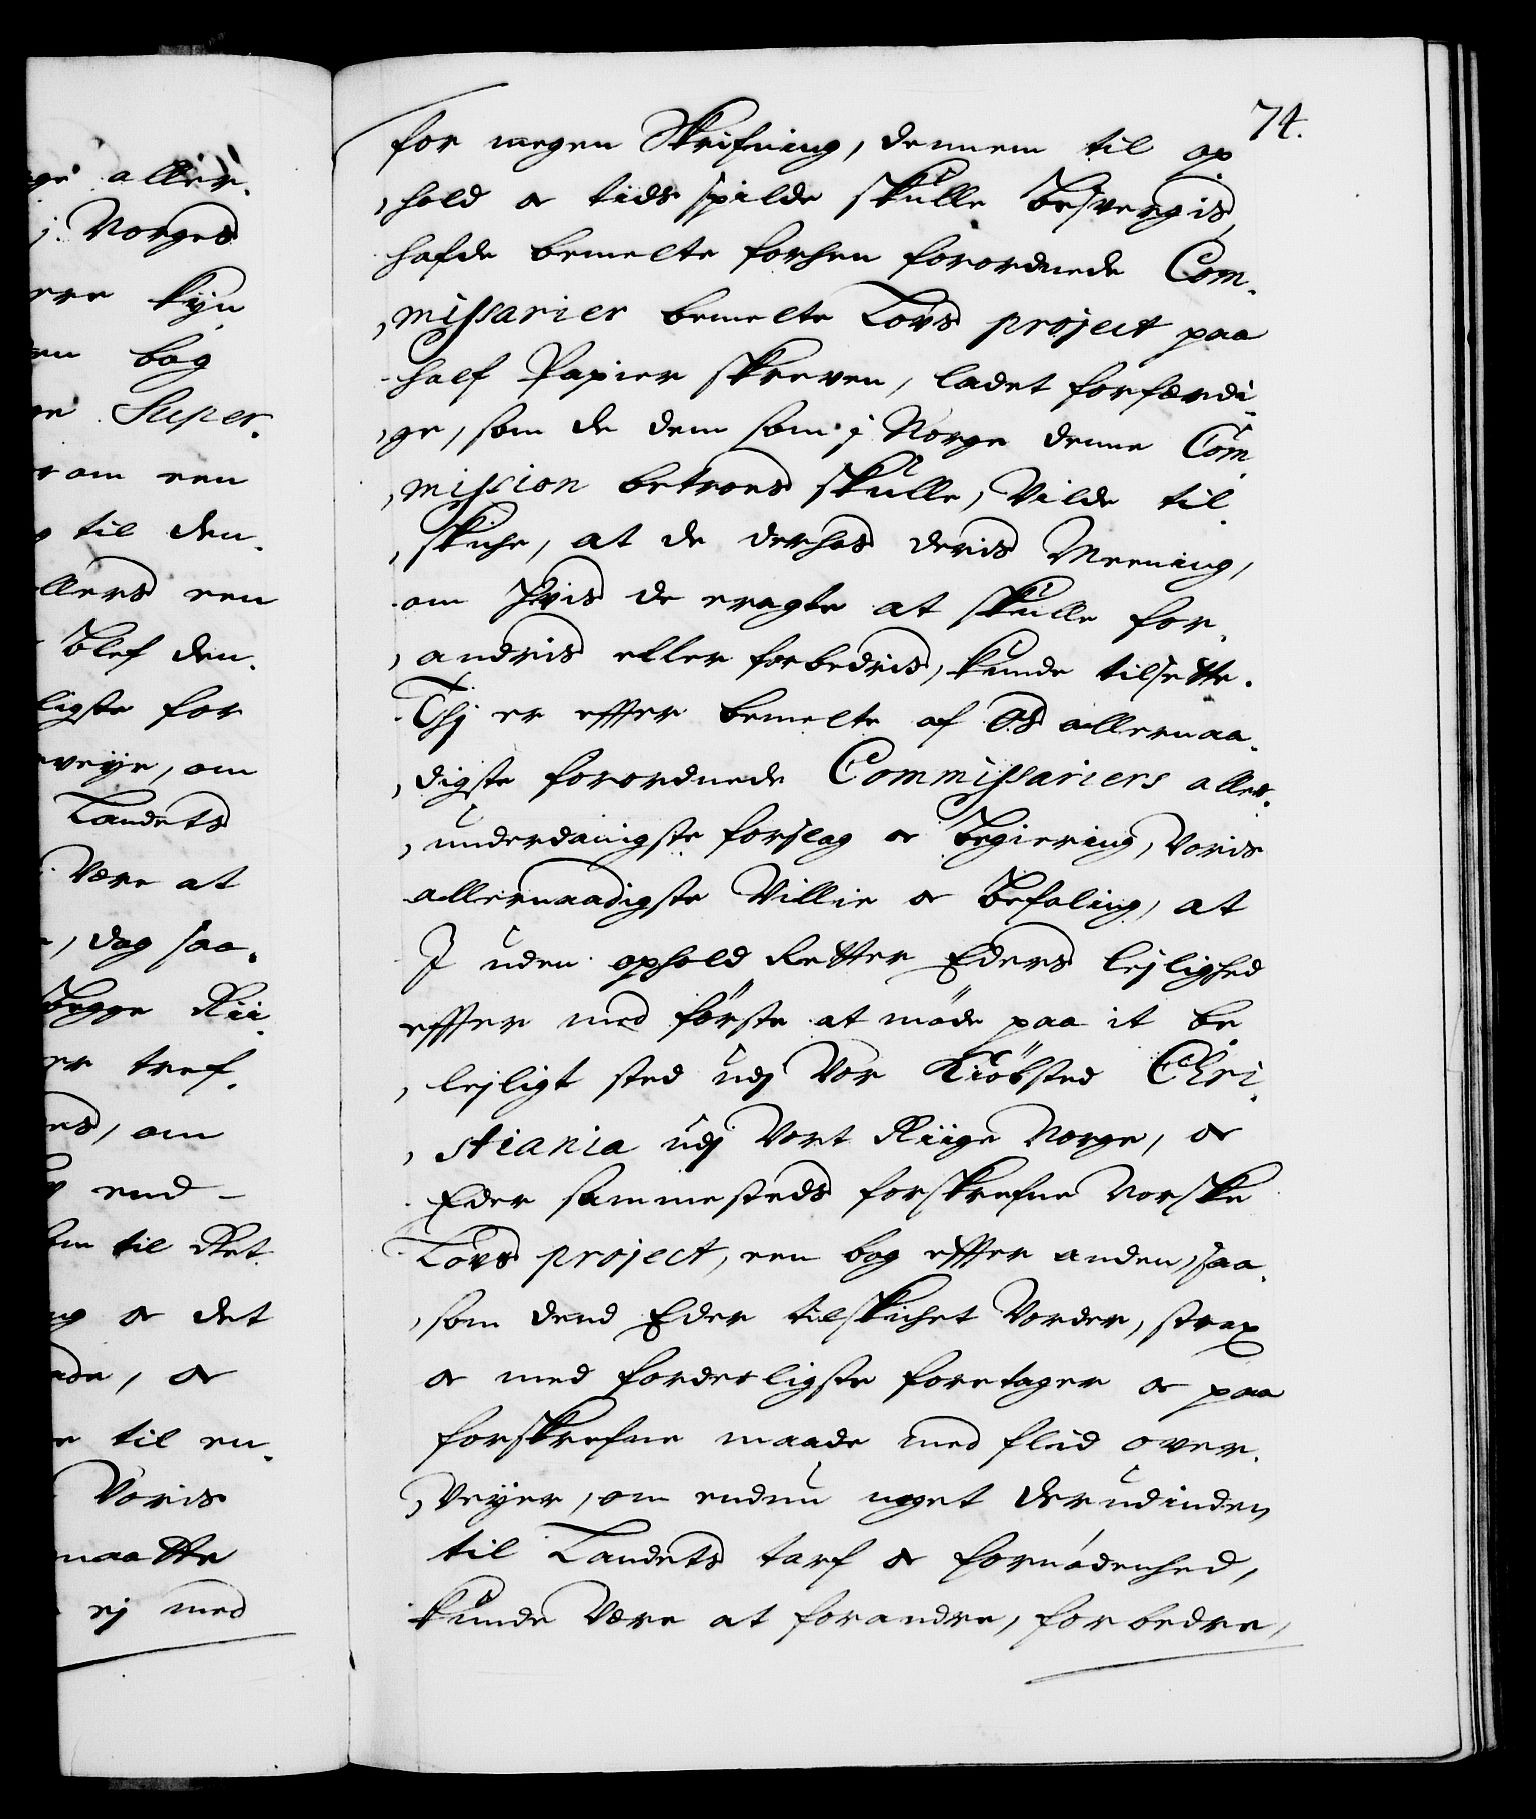 ge aller.
j Norges
ere kyn
en bog
ge Super.
om een
til den.
llers een
blef den.
ligste for
veye, om
Landets
Være at
, dog saa.
begge Rii
er tref.
es, om
end -
til Ret
ng oc det
ade, oc
e til en.
Voris
maatte
ej med
74.
for megen Skrifning, dennem til op
,hold oc tids spilde skulle besvergis,
hafde bemelte forhen forordnede Com.
,missarier bemelte Lovs project paa
half Papier skreven, ladet forfærdi.
,ge, som de dem som j Norge denne Com
,mission betroes skulle, Vilde til.
,skiche, at de derhos deris Meening,
om hvis de eragte at skulle for.
,andris eller forbedris, kunde tilsette.
Thj er effter bemelte af Os allernaa.
,digste forordnede Commissariers aller.
,underdanigste forslag oc begiering, Voris
allernaadigste Villie oc befaling, at
I uden ophold Retter Eders lejlighed
effter med første at møde paa it be
,lejligt sted udj Vor Kiøbsted Chri.
,stiania udj Vort Riige Norge, oc
Eder sammesteds forskrefne Norske
Lovs project, een bog effter anden, saa.
,som dend Eder tilskichet Vorder, strax
oc med forderligste foretager oc paa
forskrefne maade med flid over.
,Veyer, om endnu noget derudinden
til Landets tarf oc fornødenhed,
kunde Være at forandre, forbedre,